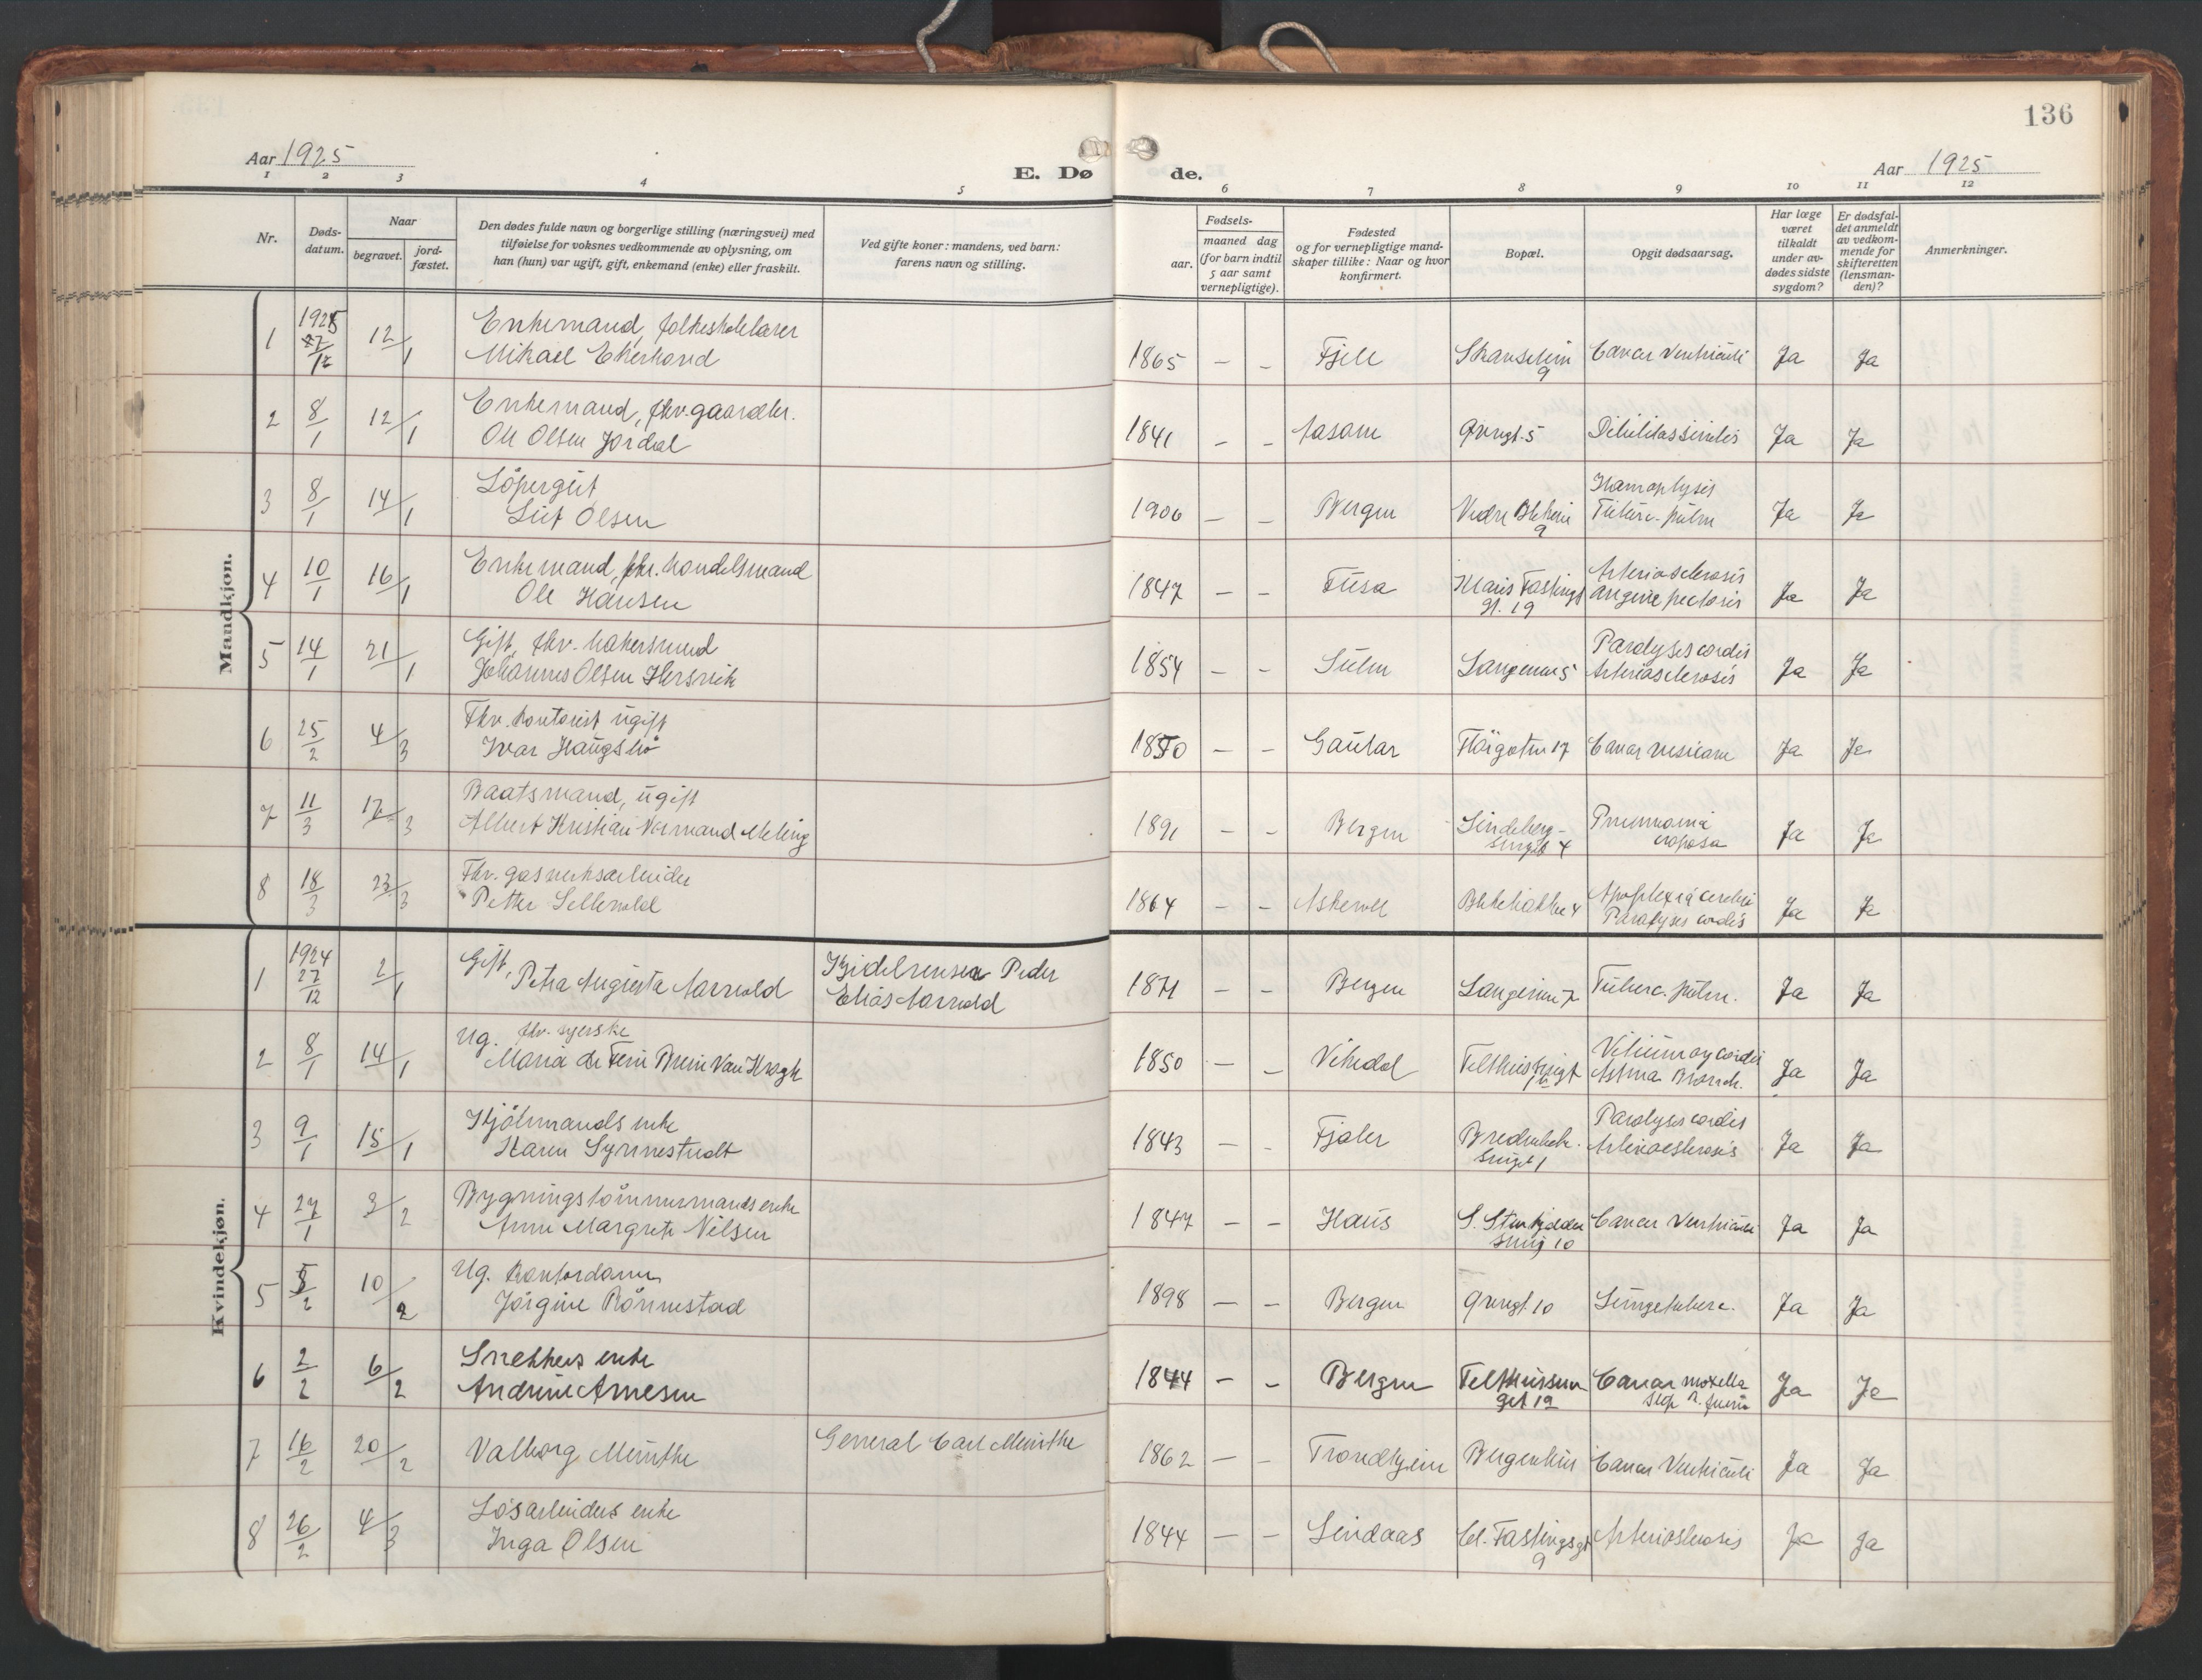 136
Aar 1925
E. Dø
de.
Aar 1925
1 2 3 4 5 6 7 8 9 10 11 12
Nr.
Døds-
datum.
Naar
begravet.
jord-
fæstet.
Den dødes fulde navn og borgerlige stilling (næringsvei) med
tilføielse for voksnes vedkommende av oplysning, om
han (hun) var ugift, gift, enkemand (enke) eller fraskilt.
Ved gifte koner: mandens, ved barn:
farens navn og stilling.
Fødsels-
aar.
maaned dag
(for barn indtil
5 aar samt
vernepligtige).
Fødested
og for vernepligtige mand-
skaper tillike: Naar og hvor
konfirmert.
Bopæl.
Opgit dødsaarsag.
Har læge
været
tilkaldt
under av-
dødes sidste
sygdom?
Er dødsfal-
det anmeldt
av vedkom-
mende for
skifteretten
(lensman-
den)?
Anmerkninger.
Mandkjøn.
1 12/1 Enkemand, folkeskolelærer
Mikael Ekerhovd
1865 – – Fjell Skanselien 9 Cancer Ventriculi Ja Ja
2 8/1 12/1 Enkemand, fhv. gaardbr.
Ole Olsen Jordal
1841 – – Aasane 5 Debilitas senilis Ja Ja
3 8/1 14/1 Løpergut
Leif Olsen
1906 – – Bergen Nedre Blekevei 9 Hæmoptysis
Tuberc. pulm Ja Ja
4 10/1 16/1 Enkemand, fhv. handelsmand
Ole Hansen
1847 – – Fusa Claus Fastings
gt. 19 Arteriosclerosis
Angine pectoris Ja Ja
5 14/1 21/1 Gift, fhv.
Johannes Olsen Hersvik
1854 – – Sulen 5 Paralyses cordis
Arteriosclerosis Ja Ja
6 25/2 4/3 Fhv. kontorist ugift
Ivar
1850 – – Gaular 17 Cancer vesicae Ja Ja
7 11/3 17/3 Baatsmand, ugift
Albert Kristian Normand Meling
1891 – – Bergen Lindeberg-
smuget 4 Pneumonia
croposa Ja Ja
8 18/3 23/3 Fhv. gasverksarbeider
Petter Sellevold
1864 – – Askevold Blekebakken 4 Apoplexia cerebri
Paralyses cordis Ja Ja
Kvindekjøn.
1 1924 27/12 2/1 Gift,
Petra Augusta Aarvold
Peder
Elias Aarvold
1871 – – Bergen 7 Tuberc. pulm. Ja Ja
2 8/1 14/1 Ug. fhv. syerske
Maria de Brun Van Krogh
1850 – – Vikedal Vitium cordis
Astma Bronch. Ja Ja
3 9/1 15/1 enke
Karen Synnestvedt
1843 – Fjaler
smuget 1 Paralyses cordis
Arteriosclerosis Ja Ja
4 27/1 3/2 Bygningstømmermands enke
Anne Margrete Nilsen
1847 – – Haus S. Stenkjelder
smug 10 Cancer Ventriculi Ja Ja
5 10/2 Ug. kontordame
Jørgine Rønnestad
1898 – – Bergen 10 Lungetuberc. Ja Ja
6 2/2 6/2 Snekkers enke
Andrine Arnesen
1844 – – Bergen Telthussmu
get 12 Cancer Ja Ja
7 16/2 20/2 Valborg Munthe
General Carl Munthe
1862 – – Trondhjem Bergenhus Cancer Ventriculi Ja Ja
8 26/2 4/3 Løsarbeiders enke
Inga Olsen
1844 – – Lindaas Cl. Fastingsgt
9 Arteriosclerosis Ja Ja